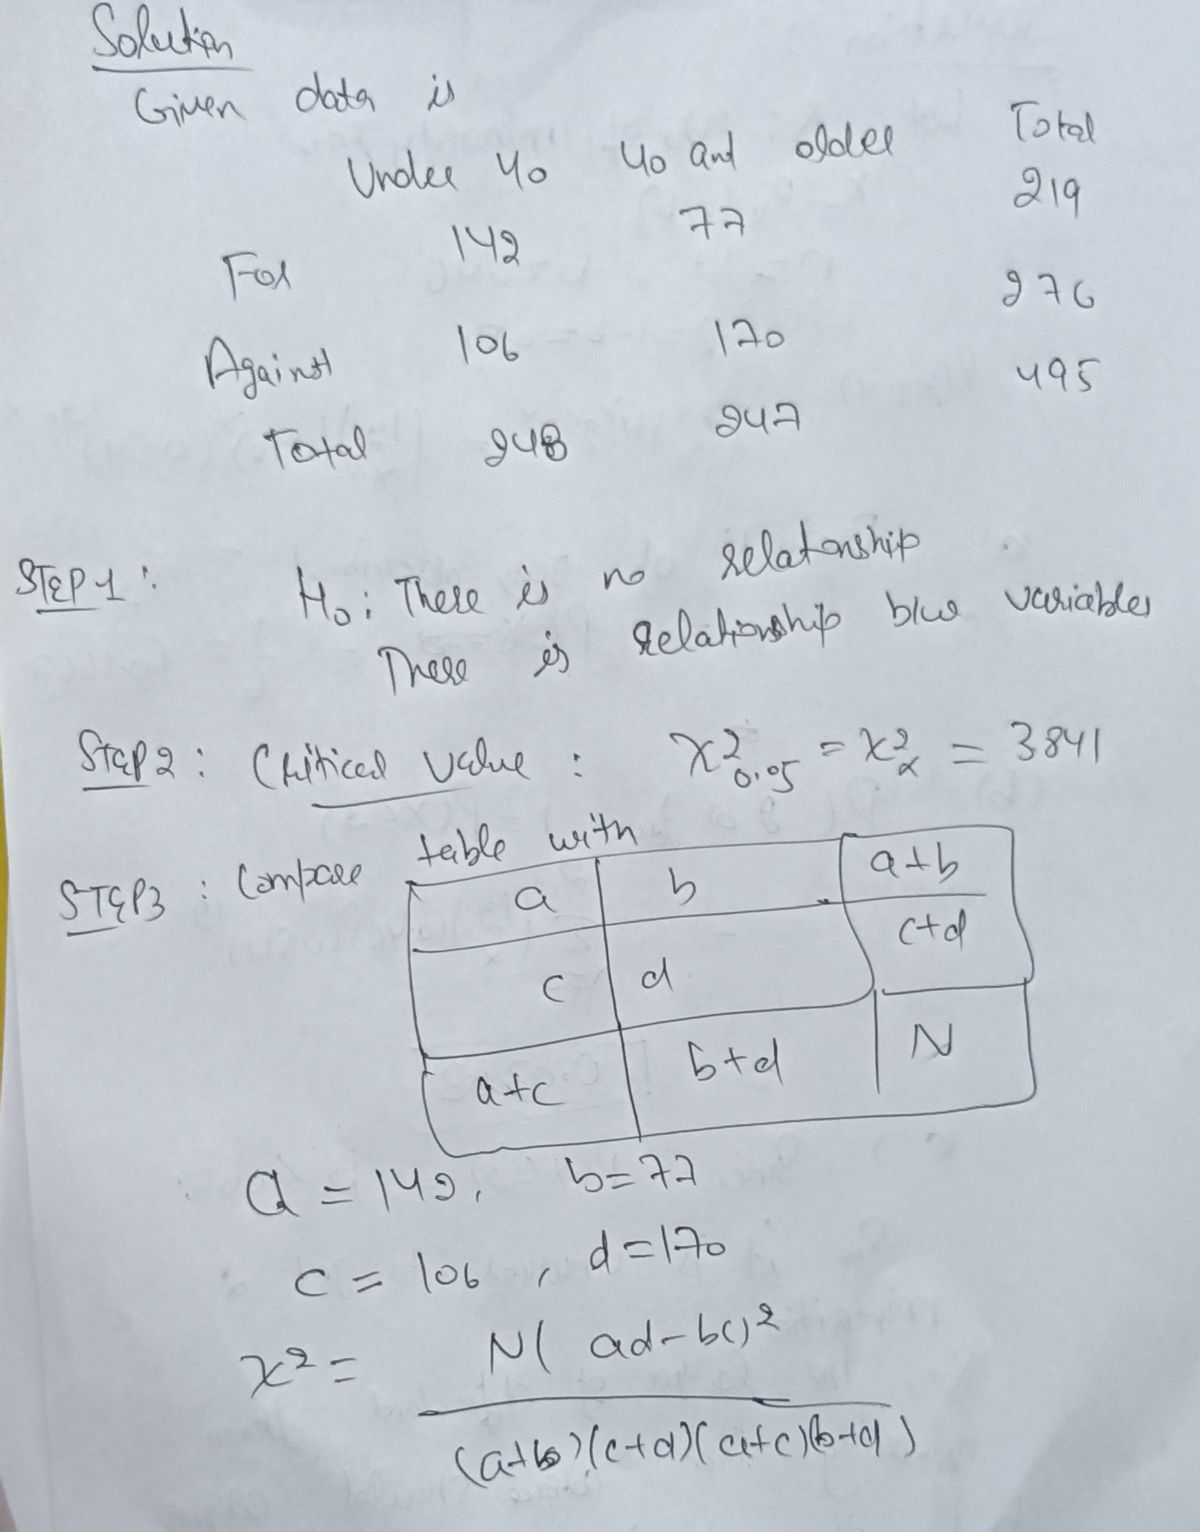 Solution
Given data is
Under 40 40 and older Total
For 142 77 219
Against 106 170 276
Total 248 247 495
STEP 1:
H₀: There is no relatonship
There is relationship b/w variables
Step 2: Critical value: χ²0.05 = χ²α = 3841
STEP3: Compare table with
a b a+b
c d c+d
a+c b+d N
a = 142, b=77
c = 106, d=170
χ² = N( ad-bc)²
(a+b)(c+d)(a+c)(b+d)